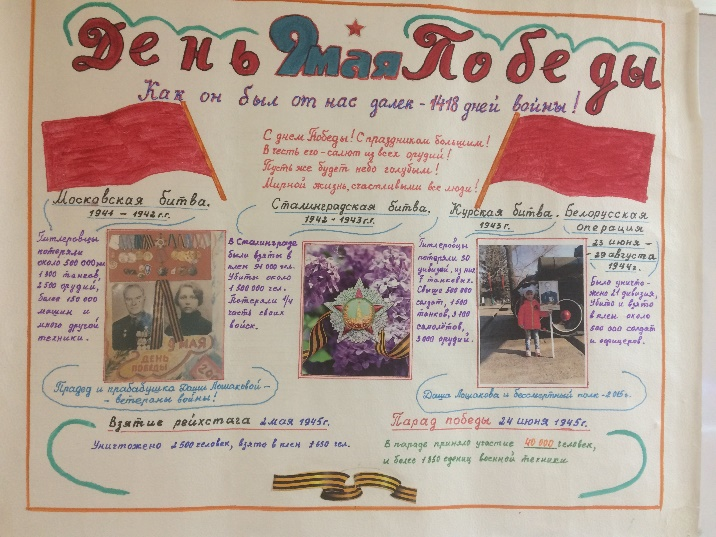 День 9 мая Победы
Как он был от нас далек - 1418 дней войны!
С днем Победы! С праздником большим!
В честь его - салют из всех орудий!
Пусть же будет небо голубым!
Мирной жизнь, счастливыми все люди!
Московская битва.
1941 - 1942 г.г.
Гитлеровцы
потеряли
около 500 000 чел.
1 300 танков,
2 500 орудий,
более 150 000
машин и
много другой
техники.
9 МАЯ
ДЕНЬ
ПОБЕДЫ
Сталинградская битва.
1942 - 1943 г.г.
В Сталинграде
были взяты в
плен 91 000 чел.
Убиты около
1 500 000 чел.
Потеряли 1/4
часть своих
войск.
Курская битва.
1943 г.
Гитлеровцы
потеряли 30
дивизий, из них
7 танковых.
Свыше 500 000
солдат, 1 500
танков, 3 700
самолётов,
3 000 орудий.
Белорусская
операция
23 июня -
29 августа
1944 г.
Было уничто-
жено 21 дивизия,
Убито и взято
в плен около
500 000 солдат
и офицеров.
Прадед и прабабушка Даши Лошаковой -
- ветераны войны!
Даша Лошакова и бессмертный полк - 2015 г.
Взятие рейхстага 2 мая 1945 г.
Уничтожено 2 500 человек, взято в плен 1 650 чел.
Парад победы 24 июня 1945 г.
В параде приняло участие 40 000 человек,
и более 1 850 едениц военной техники